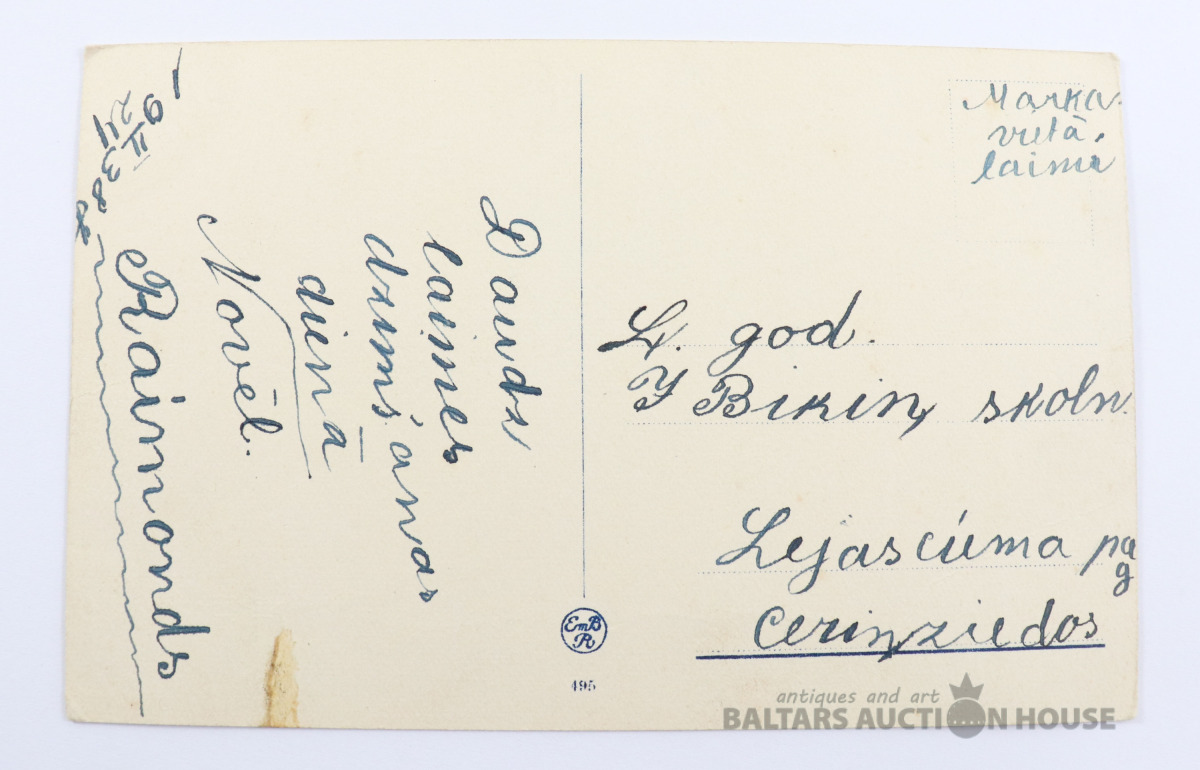 Daudz
laimes
dzimšanas
dienā
Novēl.
Raimonds
19 24/II 38 g
Marka
vietā.
laime
Ļ. god.
J Birin, skoln.
Lejasciema pag
Ceriņziedos
EmB
R
495
antiques and art
BALTARS AUCTION HOUSE